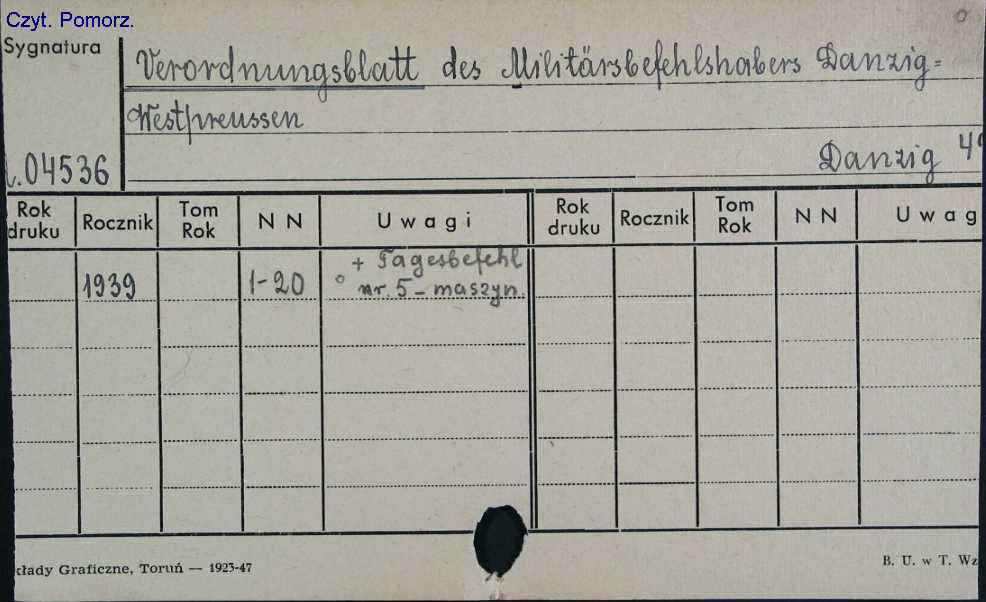 Czyt. Pomorz.
Sygnatura
Verordnungsblatt des Militärsbefehlshabers Danzig=
Westpreussen
.04536
Danzig 4°
Rok druku Rocznik Tom Rok N N Uwagi Rok druku Rocznik Tom Rok N N Uwag
1939 1-20 + Tagesbefehl
° nr. 5 - maszyn.
kłady Graficzne, Toruń — 1923-47
B. U. w T. Wz